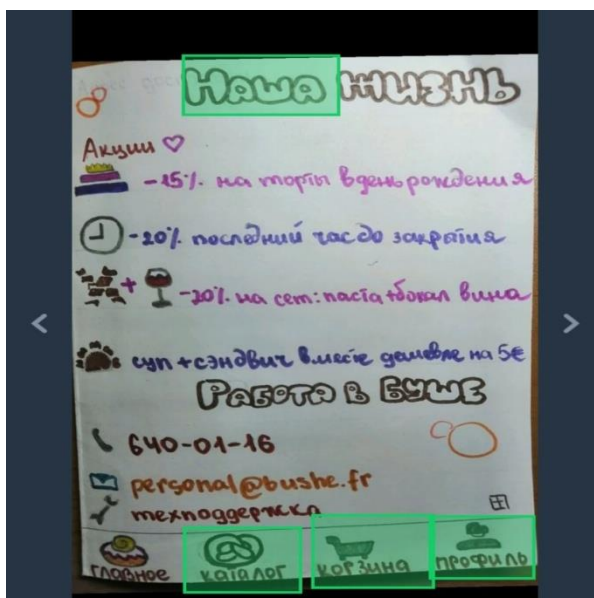 Наша жизнь
Акции
-15% на торты в день рождения
-20% последний час до закрытия
-20% на сет: паста + бокал вина
суп + сэндвич вместе дешевле на 5€
Работа в Буше
640-01-16
personal@bushe.fr
техподдержка
главное каталог корзина профиль